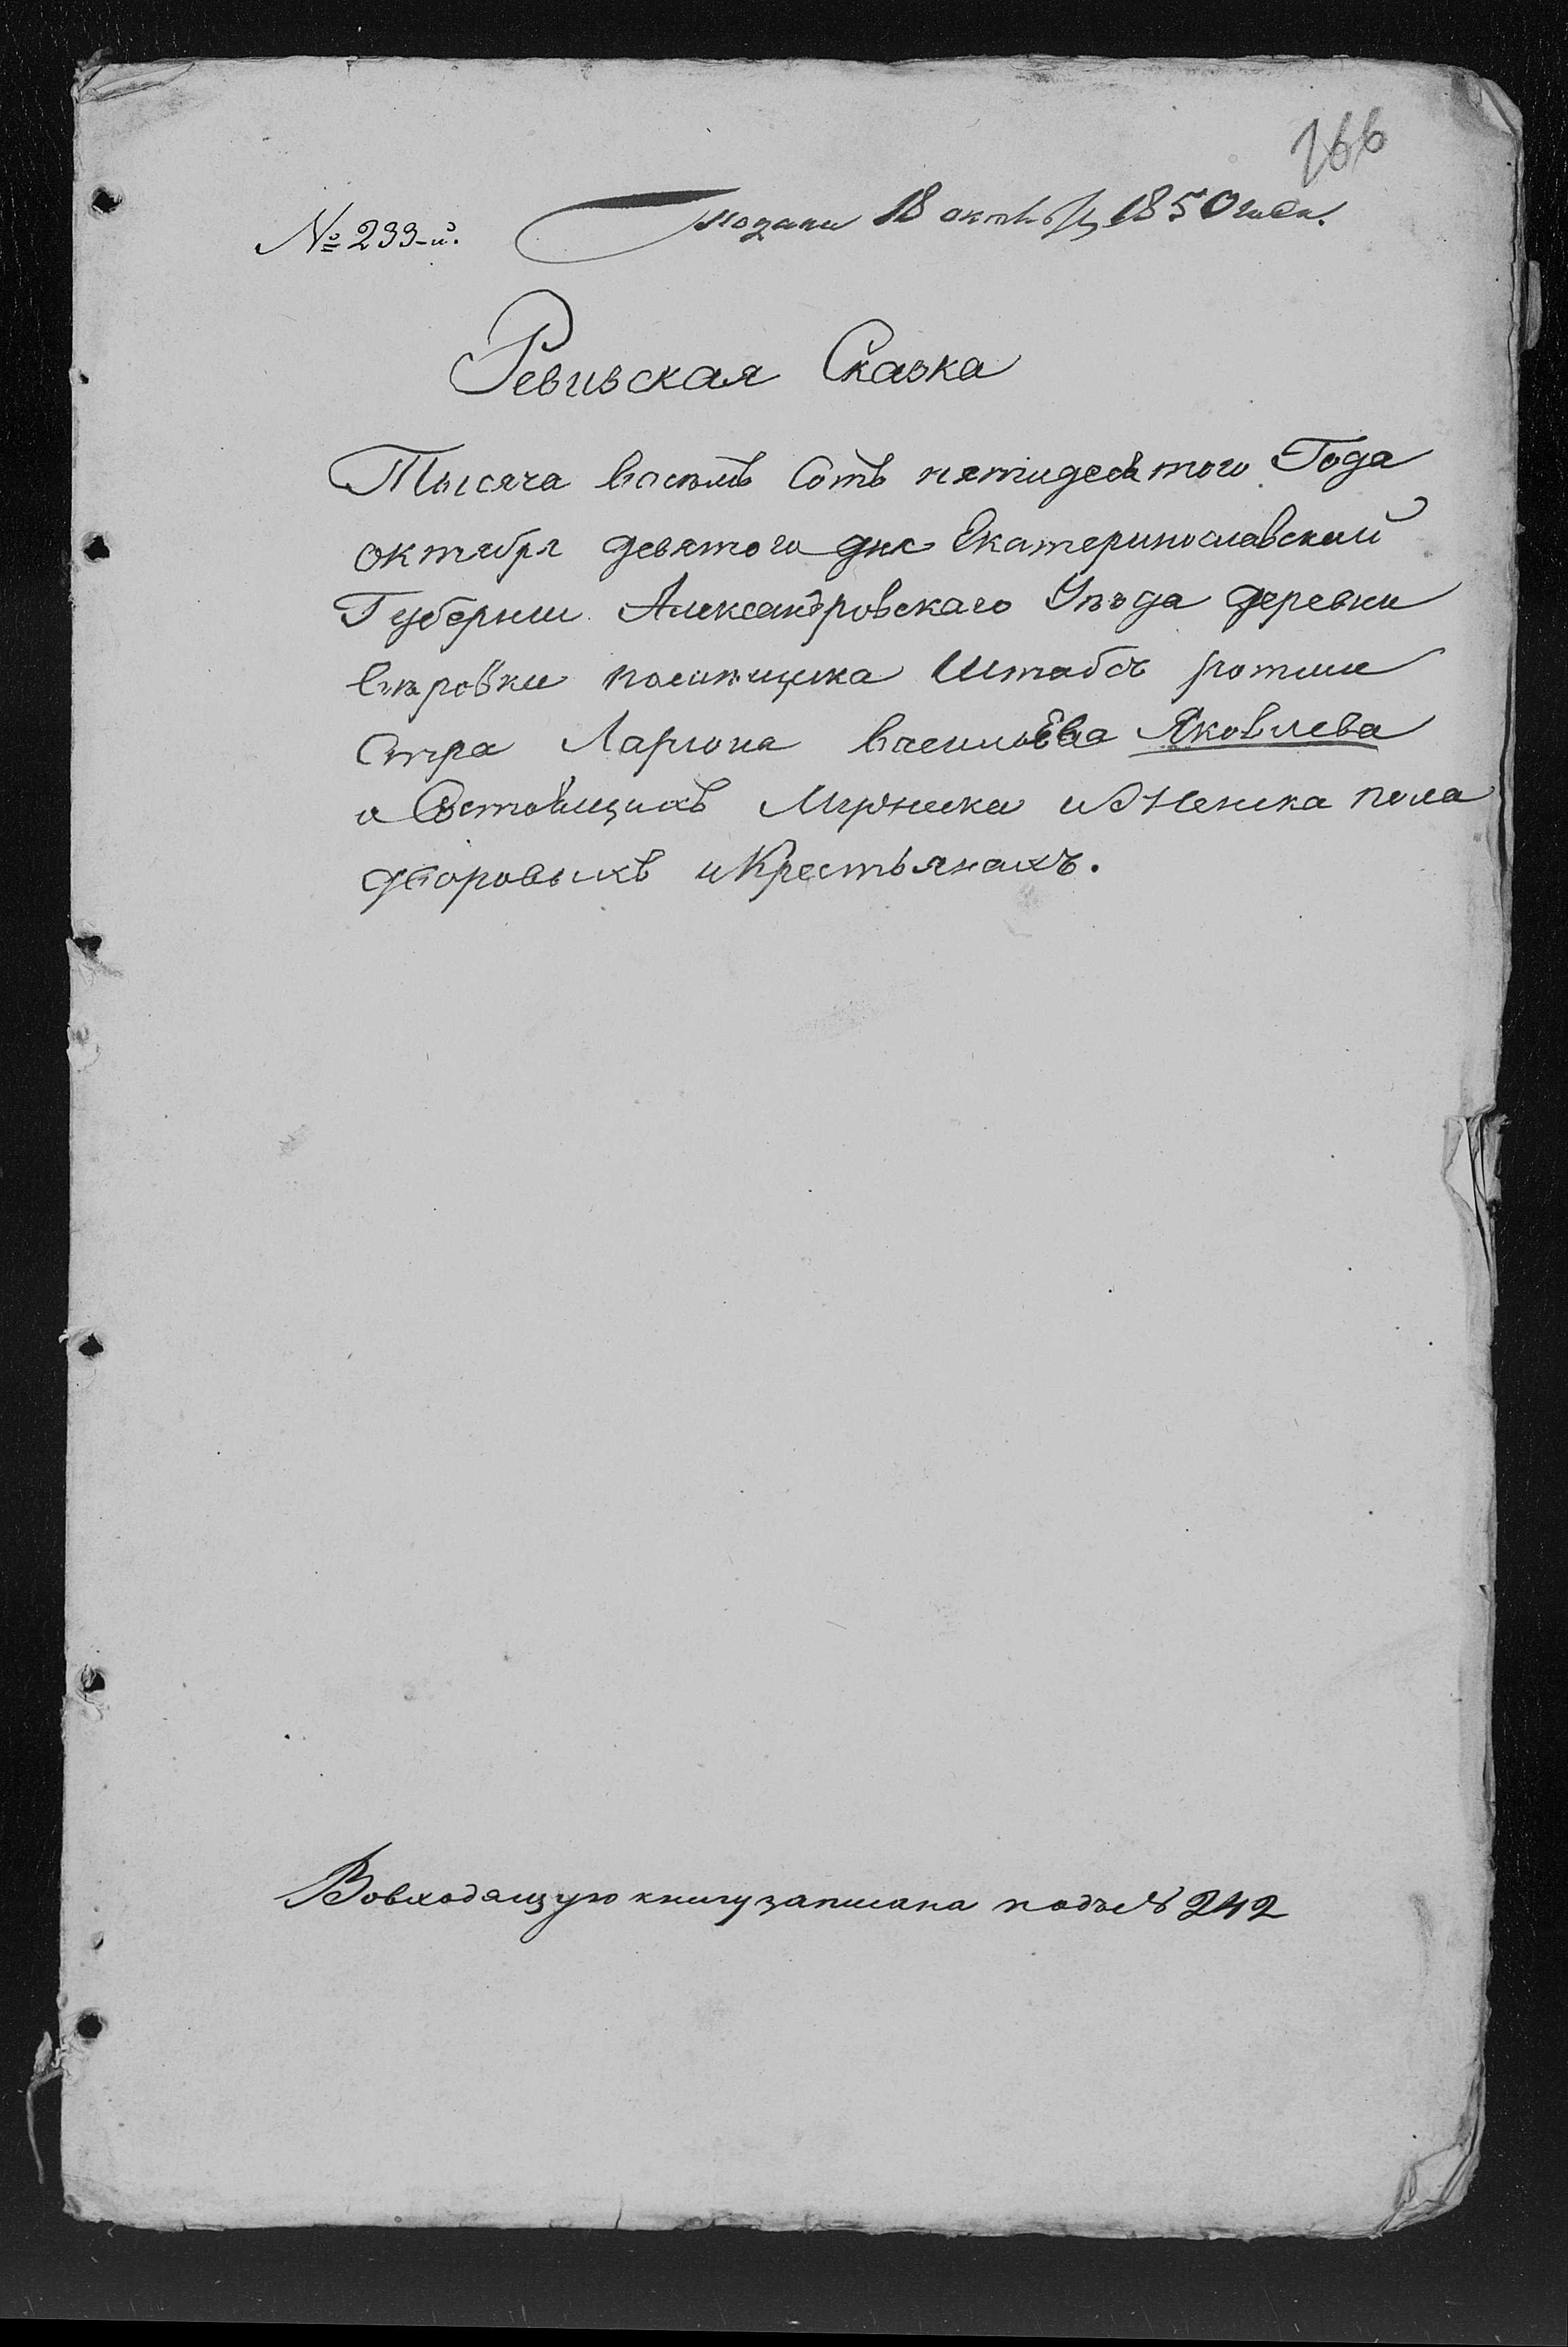 166
№ 233-й. Подана 18 октября 1850 года.
Ревизская Сказка
Тысяча восемь Сотъ пятидесятого Года
октября девятого дня Екатеринославской
Губернии Александровскаго Уѣзда деревни
помещика Штабсъ ротми
Стра Лариона Васильева Яковлева
о Состоящихъ Мужеска и Женска пола
дворовыхъ и Крестьянахъ.
Во входящую книгу записана подъ № 242